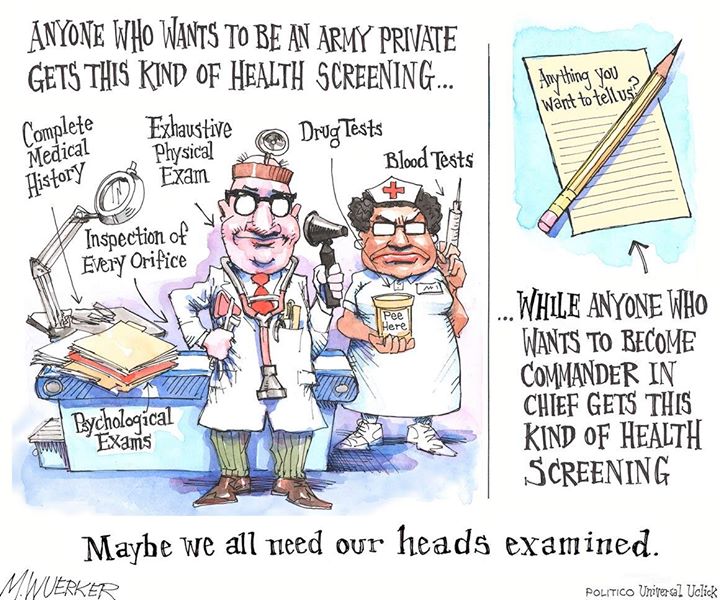 ANYONE WHO WANTS TO BE AN ARMY PRIVATE
GETS THIS KIND OF HEALTH SCREENING...
Complete
Medical
History
Exhaustive
Physical
Exam
Drug Tests
Blood Tests
Inspection of
Every Orifice
Pee
Here
Psychological
Exams
Anything you
want to tell us?
...WHILE ANYONE WHO
WANTS TO BECOME
COMMANDER IN
CHIEF GETS THIS
KIND OF HEALTH
SCREENING
Maybe we all need our heads examined.
M.WUERKER
POLITICO Universal Uclick